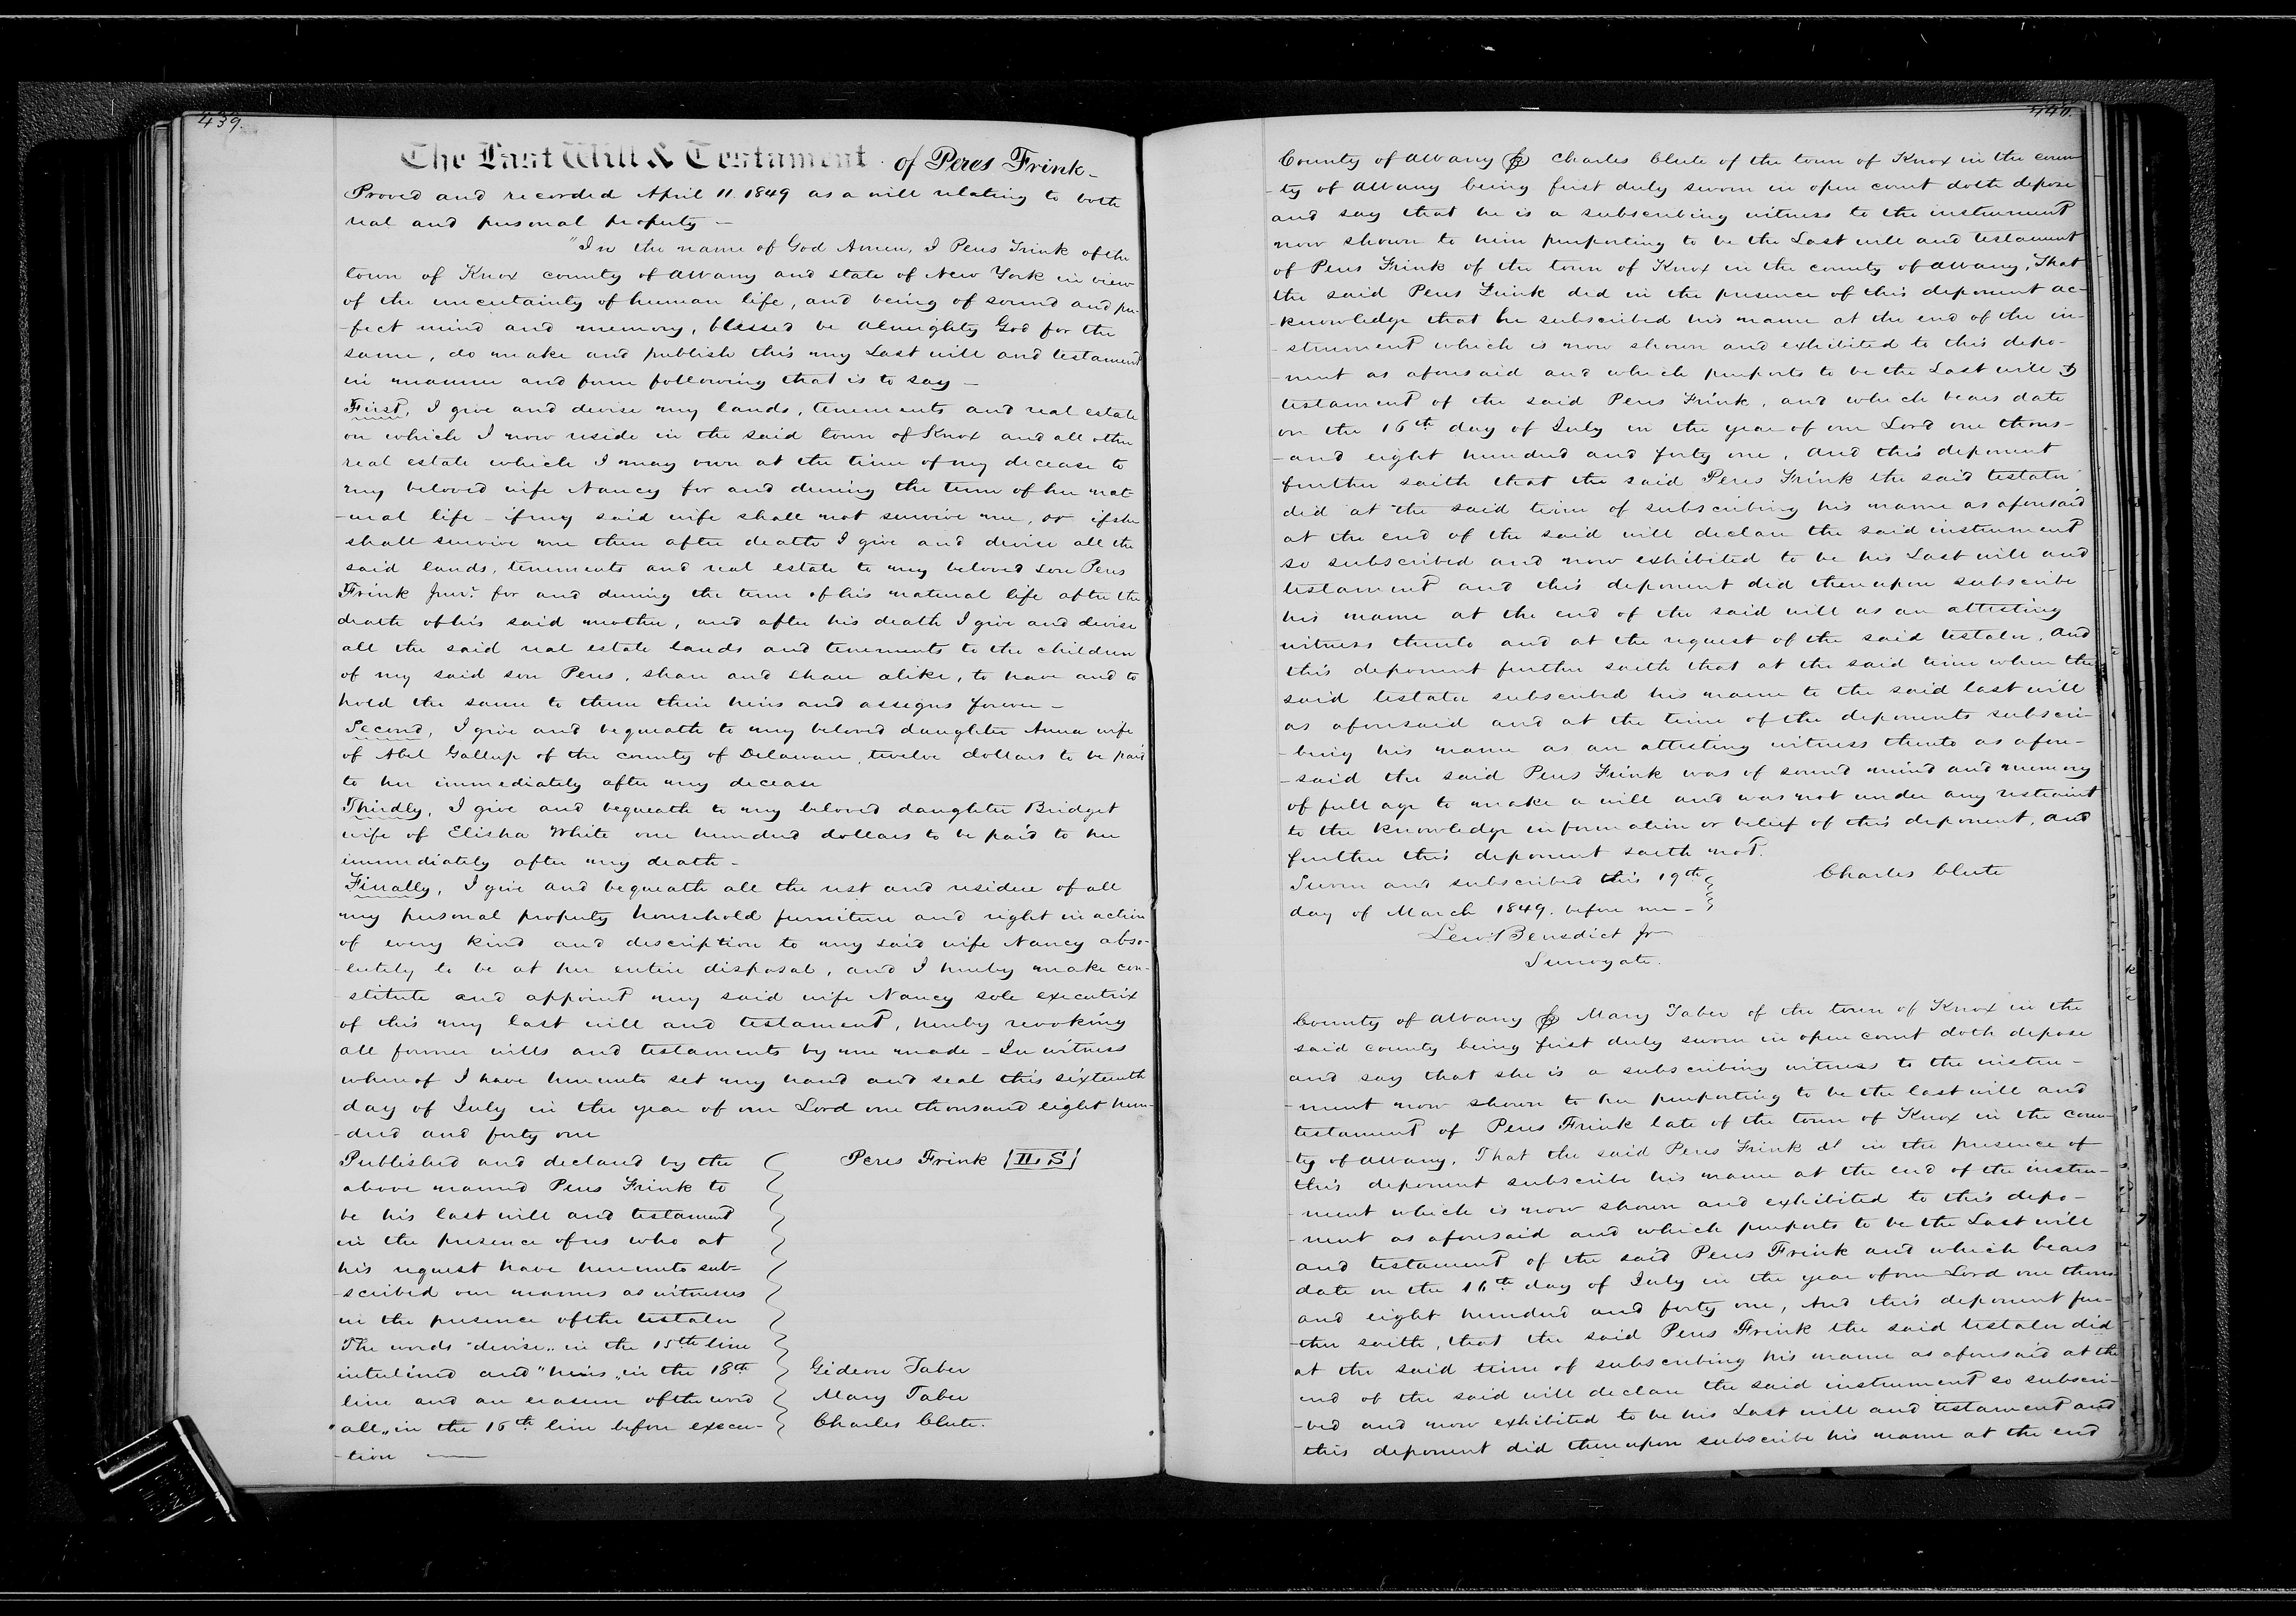 439.
The Last Will & Testament of Peres Frink -
Proved and recorded April 11. 1849 as a will relating to both
real and personal property -
"In the name of God Amen, I Peres Frink of the
town of Knox county of Albany and state of New York in view
of the uncertainty of human life, and being of sound and per-
-fect mind and memory, blessed be Almighty God for the
same, do make and publish this my Last will and testament
in manner and form following that is to say -
First, I give and devise my lands, tenements and real estate
on which I now reside in the said town of Knox and all other
real estate which I may own at the time of my decease to
my beloved wife Nancy for and during the term of her nat-
-ural life - if my said wife shall not survive me, or if she
shall survive me then after death I give and devise all the
said lands, tenements and real estate to my beloved son Peres
Frink Junr. for and during the term of his natural life after the
death of his said mother, and after his death I give and devise
all the said real estate lands and tenements to the children
of my said son Peres, share and share alike, to have and to
hold the same to them their heirs and assigns forever -
Second, I give and bequeath to my beloved daughter Anna wife
of Abel Gallup of the county of Delaware, twelve dollars to be paid
to her immediately after my decease
Thirdly, I give and bequeath to my beloved daughter Bridget
wife of Elisha White one hundred dollars to be paid to her
immediately after my death -
Finally, I give and bequeath all the rest and residue of all
my personal property household furniture and right in action
of every kind and description to my said wife Nancy abso-
-lutely to be at her entire disposal, and I hereby make con-
-stitute and appoint my said wife Nancy sole executrix
of this my last will and testament, hereby revoking
all former wills and testaments by me made - In witness
whereof I have hereunto set my hand and seal this sixteenth
day of July in the year of our Lord one thousand eight hun-
-dred and forty one
Published and declared by the
above named Peres Frink to
be his last will and testament
in the presence of us who at
his request have hereunto sub-
-scribed our names as witnesses
in the presence of the testator
The words "devise" in the 15th line
interlined and "heirs" in the 18th
line and an erasure of the word
"all" in the 16th line before execu-
-tion
Peres Frink [L S]
Gideon Taber
Mary Taber
Charles Clute.
440.
County of Albany ss Charles Clute of the town of Knox in the coun-
-ty of Albany being first duly sworn in open court doth depose
and say that he is a subscribing witness to the instrument
now shown to him purporting to be the Last will and testament
of Peres Frink of the town of Knox in the county of Albany, That
the said Peres Frink did in the presence of this deponent ac-
-knowledge that he subscribed his name at the end of the in-
-strument which is now shown and exhibited to this depo-
-nent as aforesaid and which purports to be the Last will &
testament of the said Peres Frink, and which bears date
on the 16th day of July in the year of our Lord one thous-
-and eight hundred and forty one, And this deponent
further saith that the said Peres Frink the said testator
did at the said time of subscribing his name as aforesaid
at the end of the said will declare the said instrument
so subscribed and now exhibited to be his Last will and
testament and this deponent did thereupon subscribe
his name at the end of the said will as an attesting
witness thereto and at the request of the said testator, And
this deponent further saith that at the said time when the
said testator subscribed his name to the said last will
as aforesaid and at the time of the deponents subscri-
-bing his name as an attesting witness thereto as afore-
-said the said Peres Frink was of sound mind and memory
of full age to make a will and was not under any restraint
to the knowledge information or belief of this deponent, And
further this deponent saith not.
Sworn and subscribed this 19th
day of March 1849. before me -
Charles Clute
Lew: Benedict Jr
Surrogate.
County of Albany ss Mary Taber of the town of Knox in the
said county being first duly sworn in open court doth depose
and say that she is a subscribing witness to the instru-
-ment now shown to her purporting to be the last will and
testament of Peres Frink late of the town of Knox in the coun-
-ty of Albany, That the said Peres Frink d in the presence of
this deponent subscribe his name at the end of the instru-
-ment which is now shown and exhibited to this depo-
-nent as aforesaid and which purports to be the Last will
and testament of the said Peres Frink and which bears
date on the 16th day of July in the year of our Lord one thous-
and eight hundred and forty one, And this deponent fur-
-ther saith, that the said Peres Frink the said testator did
at the said time of subscribing his name as aforesaid at the
end of the said will declare the said instrument so subscri-
-bed and now exhibited to be his Last will and testament and
this deponent did thereupon subscribe his name at the end